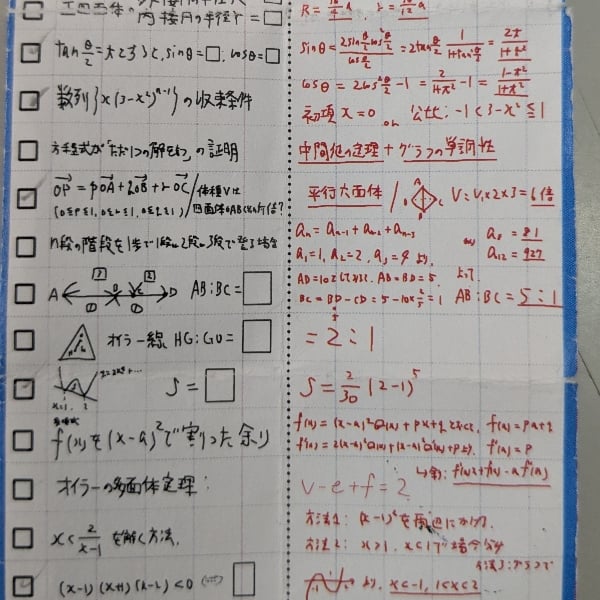 正四面体の
内接円の半径r = □
tan θ/2 = tとすると, sinθ=□, cosθ=□
sinθ = 2sin θ/2 cos² θ/2 / cos θ/2 = 2tan θ/2 · 1/(1+tan² θ/2) = 2t/(1+t²)
cosθ = 2cos² θ/2 - 1 = 2/(1+t²) - 1 = (1-t²)/(1+t²)
数列{x(3-x²)^(n-1)}の収束条件
初項 x=0 or 公比: -1<3-x²≦1
方程式が「ただ1つの解をもつ」の証明
中間値の定理+グラフの単調性
OP = pOA + qOB + rOC / 体積Vは
四面体OABCの何倍?
平行六面体 / V=V₁×2×3=6倍
n段の階段を1歩で1段、2段、3段で登る場合
aₙ = aₙ₋₁ + aₙ₋₂ + aₙ₋₃
a₁=1, a₂=2, a₃=4 より,
a₈ = 81
a₁₂ = 927
A B C D AB:BC=□
AD=10として, AB=BD=5, よって
BC = BD - CD = 5 - 10×2/5 = 1 AB:BC=5:1
オイラー線 HG:GO=□
= 2:1
S=□
S = 2/30 (2-1)⁵
f(x)を(x-a)²で割った余り
f(x)=(x-a)²Q(x)+px+q とおくと, f(a)=pa+q
f'(x)=2(x-a)Q(x)+(x-a)²Q'(x)+p より, f'(a)=p
オイラーの多面体定理:
v-e+f=2
x < 2/(x-1) を解く方法.
方法1: (x-1)²を両辺にかける.
方法2: x>1, x<1で場合分け
(x-1)(x+1)(x-2)<0 □
より, x<-1, 1<x<2